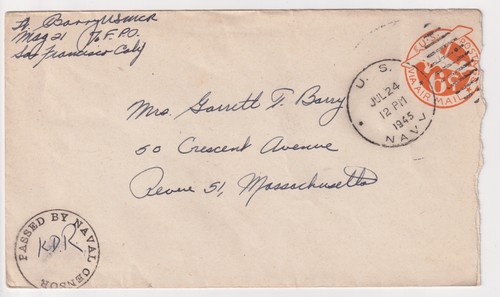 Barry USMCR
Mag 21 % F.P.O.
San Francisco Caly
U. S.
JUL 24
12 PM
1945
NAVY
VIA AIR MAIL
6¢
Mrs. Garrett T. Barry
50 Crescent Avenue
Revere 51, Massachusetts
PASSED BY NAVAL CENSOR
K.D.R.